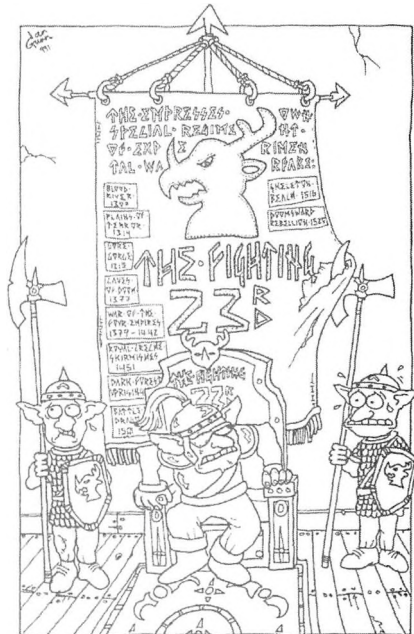 Dan
991
THE·EMPRESSES· OWN
SPECIAL·REGIME NT·
OF·EXP E RIMEN
TAL·WA RFARE:
BLOOD·
RIVER
PLAINS·OF
TERROR·
1314
GORE·
GORGE
CAVES
OF·DOOM
1377
WAR·OF·THE·
FOUR·EMPIRES
1379-1442
SKIRMISHES
1451
DARK·FOREST
UPRISING
SKELETON·
BEACH·1516
DOOMSWARD
REBELLION·1525
THE·FIGHTING
23RD
THE·FIGHTING
23R